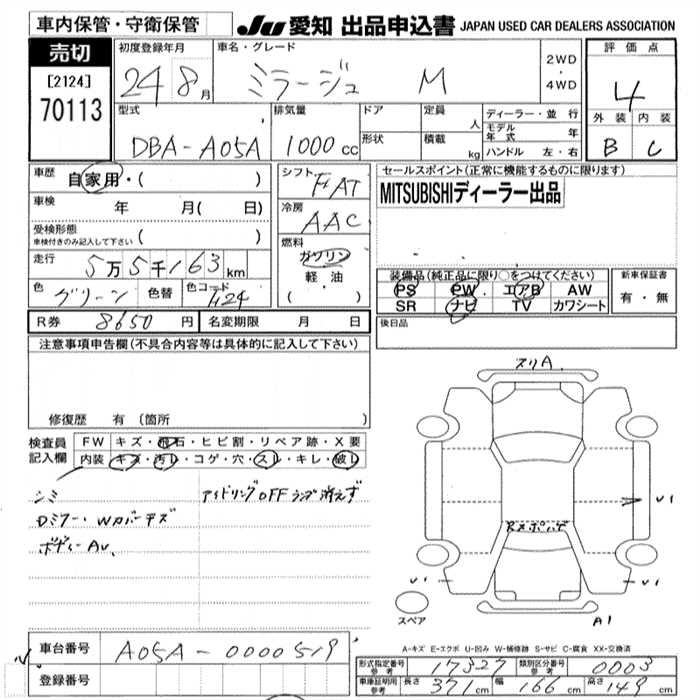 車内保管・守衛保管 JU 愛知 出品申込書 JAPAN USED CAR DEALERS ASSOCIATION
売切
[2124]
70113
初度登録年月
24 8月
車名・グレード
ミラージュ M
2WD
・
4WD
評価点
4
外装 内装
B C
型式
DBA-A05A
排気量
1000cc
ドア
形状
定員
人
積載
kg
ディーラー・並行
モデル年式 年
ハンドル 左・右
車歴 自家用・( )
車検 年 月( 日)
受検形態 ( )
車検付きのみ記入して下さい
走行 5万5千163km
色 グリーン 色替 色コード
シフト FAT
冷房 AAC
燃料
ガソリン
軽・油
( )
セールスポイント(正常に機能するものに限ります)
MITSUBISHIディーラー出品
装備品(純正品に限り○をつけてください)
PS PW エアB AW
SR ナビ TV カワシート
新車保証書
有・無
R券 8650円 名変期限 月 日
後日品
注意事項申告欄(不具合内容等は具体的に記入して下さい)
修復歴 有 (箇所 )
検査員記入欄
FW キズ・飛石・ヒビ割・リペア跡・X要
内装 キズ・汚レ・コゲ・穴・スレ・キレ・破レ
シミ アイドリングOFFランプ消えず
Dミラー・Wカバーキズ
ボディーAU、
スリA
U1
U1
U1
A1
スペア
A-キズ E-エクボ U-凹み W-補修跡 S-サビ C-腐食 XX-交換済
車台番号 A05A-0000519
登録番号
形式指定番号 参考 17327 類別区分番号 参考 0003
車庫証明用 参考 長さ 371cm 幅 166cm 高さ 149cm